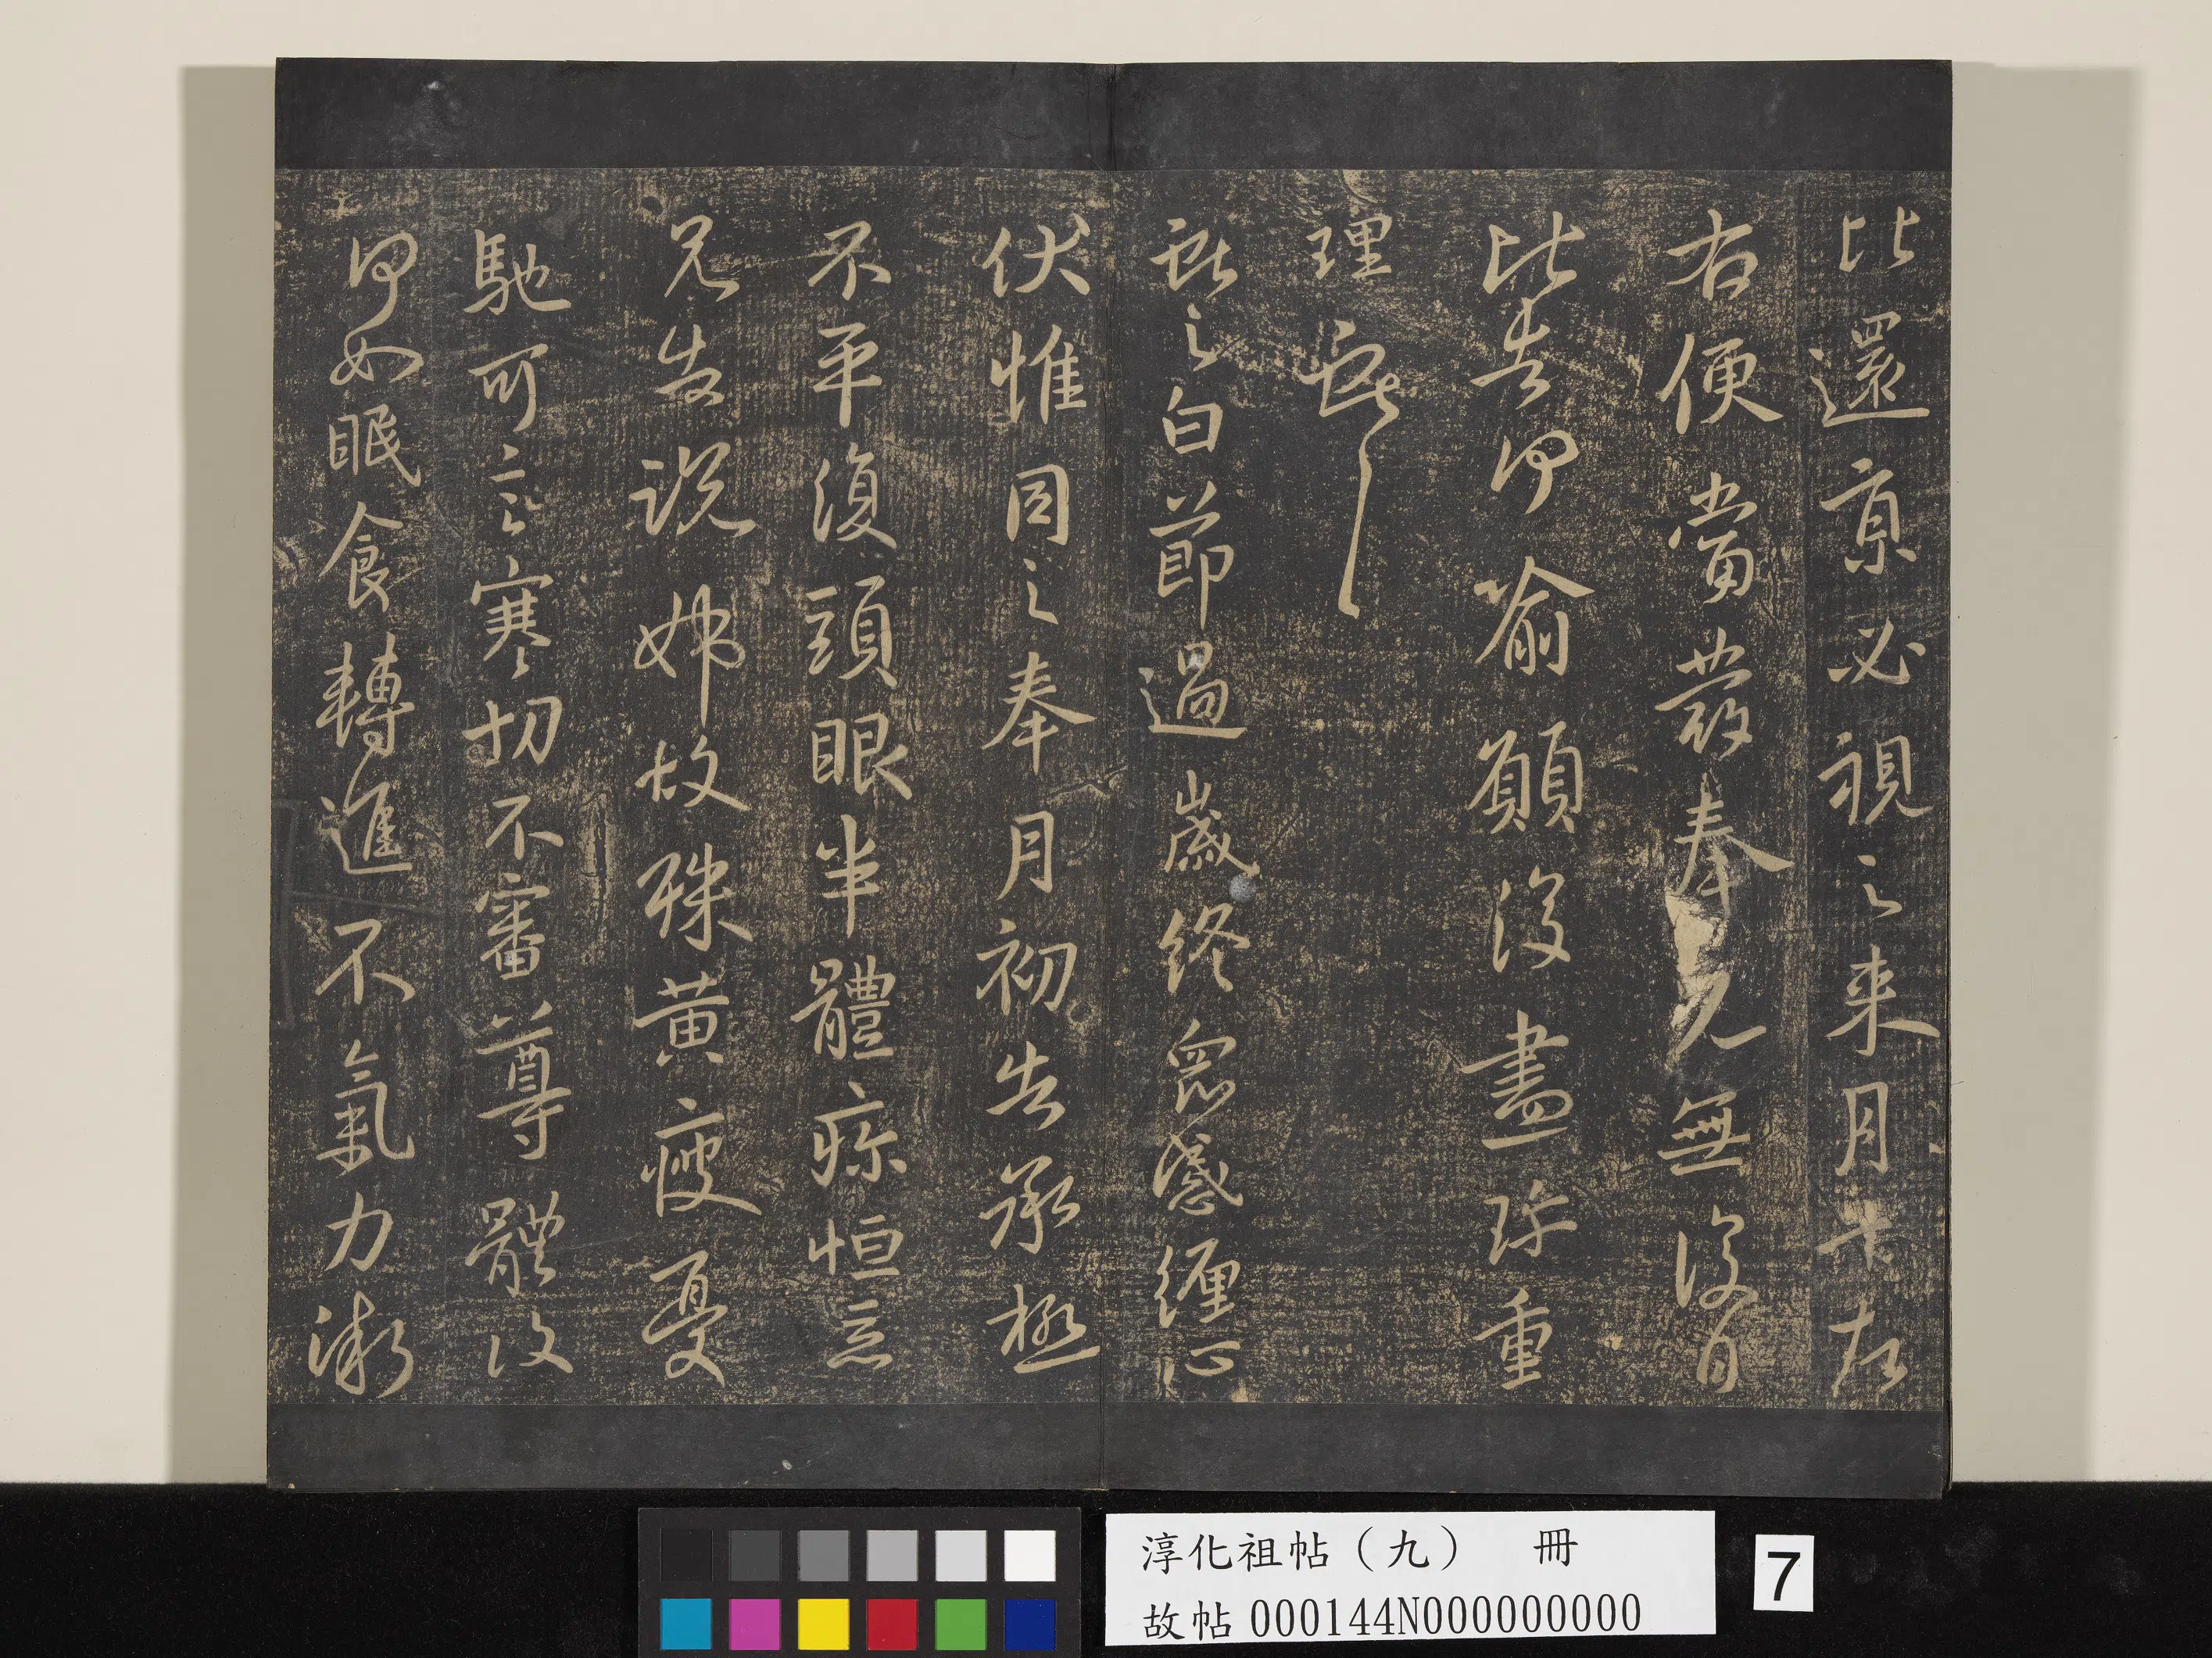 比還京必視之来月十左
右便當發奉見無復日
比告何喻願復盡珍重
理獻之
獻之白節過歲終眾感纏心
伏惟同之奉月初告承極
不平復頭眼半體疼恒惡
兄告說姊故殊黃瘦憂
馳可言寒切不審尊體復
何如眠食轉進不氣力漸
淳化祖帖（九） 冊
故帖000144N000000000
7